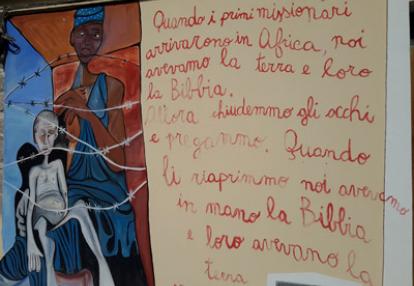 Quando i primi missionari
arrivarono in Africa, noi
avevamo la terra e loro
la Bibbia.
Allora chiudemmo gli occhi
e pregammo. Quando
li riaprimmo noi avevamo
in mano la Bibbia
e loro avevano la
terra